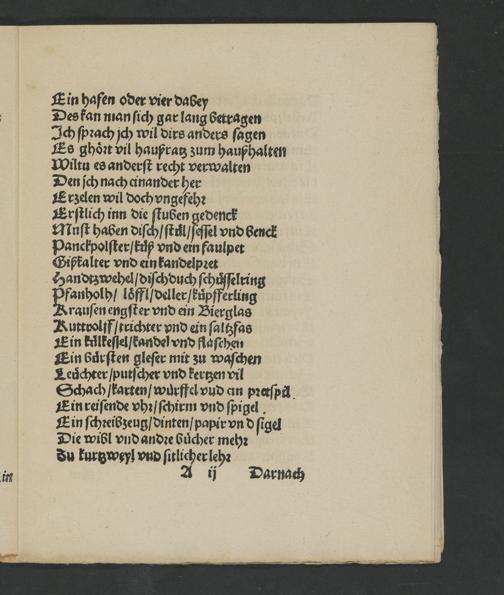 Ein hafen oder vier dabey
Des kan man sich gar lang betragen
Ich sprach jch wil dirs anders sagen
Es ghört vil haußratz zum haußhalten
Wiltu es anderst recht verwalten
Den jch nach einander her
Erzelen wil doch vngefehr
Erstlich inn die stuben gedenck
Must haben disch/stül/sessel vnd benck
Panckpolster/küß vnd ein faulpet
Gißkalter vnd ein kandelpret
Handtzwehel/dischduch schüsselring
Pfanholh/ löffl/deller/küpfferling
Krausen engster vnd ein Bierglas
Kuttrolff/trichter vnd ein saltzfas
Ein külkessel/kandel vnd flaschen
Ein bürsten gleser mit zu waschen
Leüchter/putscher vnd kertzen vil
Schach/karten/würffel vnd ein pretspil.
Ein reisende vhr/schirm vnd spigel.
Ein schreibzeug/dinten/papir vnd sigel
Die wibl vnd andre bücher mehr
Zu kurtzweyl vnd sitlicher lehr
A ij Darnach